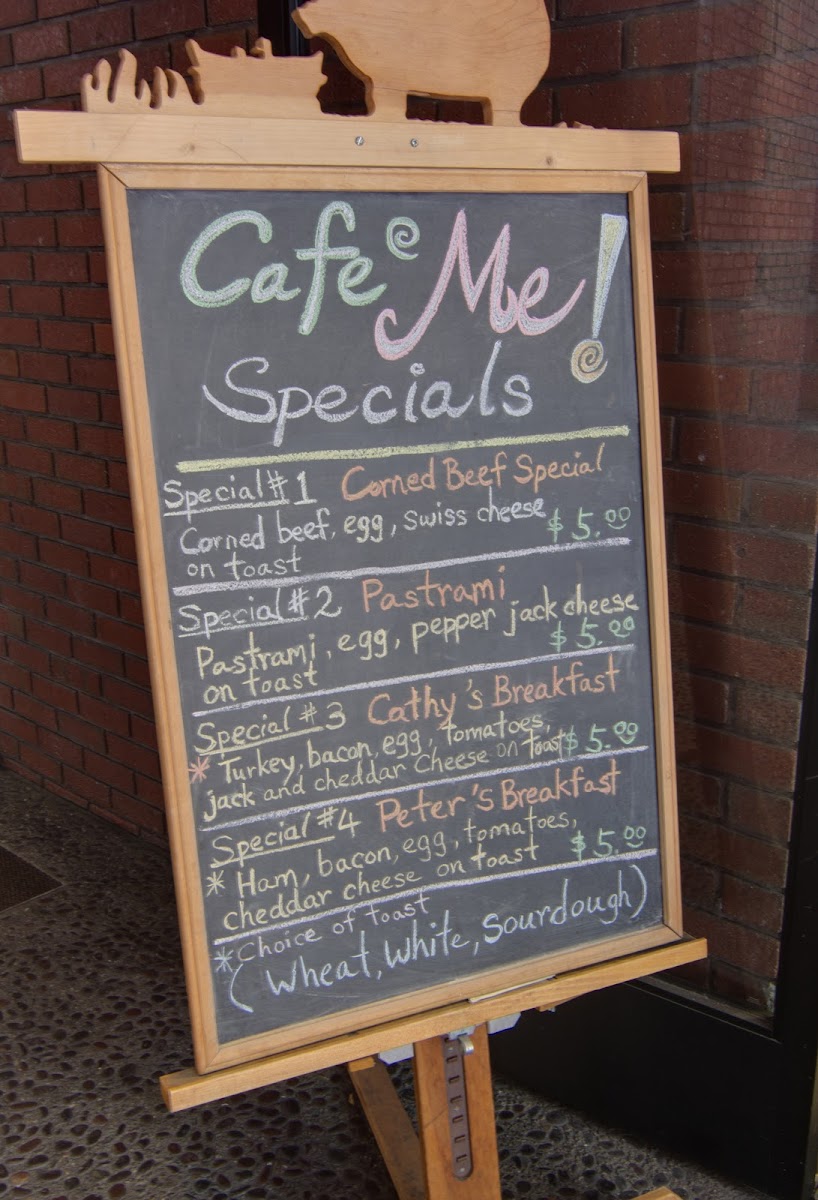 Cafe Me!
Specials
Special #1 Corned Beef Special
Corned beef, egg, swiss cheese
on toast $5.00
Special #2 Pastrami
Pastrami, egg, pepper jack cheese
on toast $5.00
Special #3 Cathy's Breakfast
* Turkey, bacon, egg, tomatoes,
jack and cheddar cheese on toast $5.00
Special #4 Peter's Breakfast
* Ham, bacon, egg, tomatoes,
cheddar cheese on toast $5.00
* Choice of toast
(Wheat, White, Sourdough)